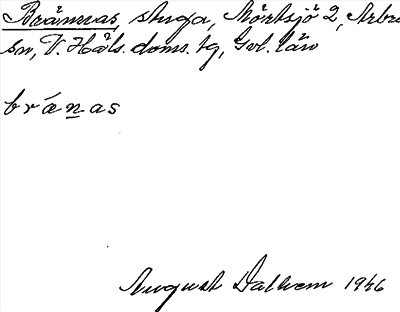 Brännas, stuga, Mörtsjö 2, Arbrå
sn, V. Häls. doms. tg, Gvl. län
bránas
August Dalhem 1946